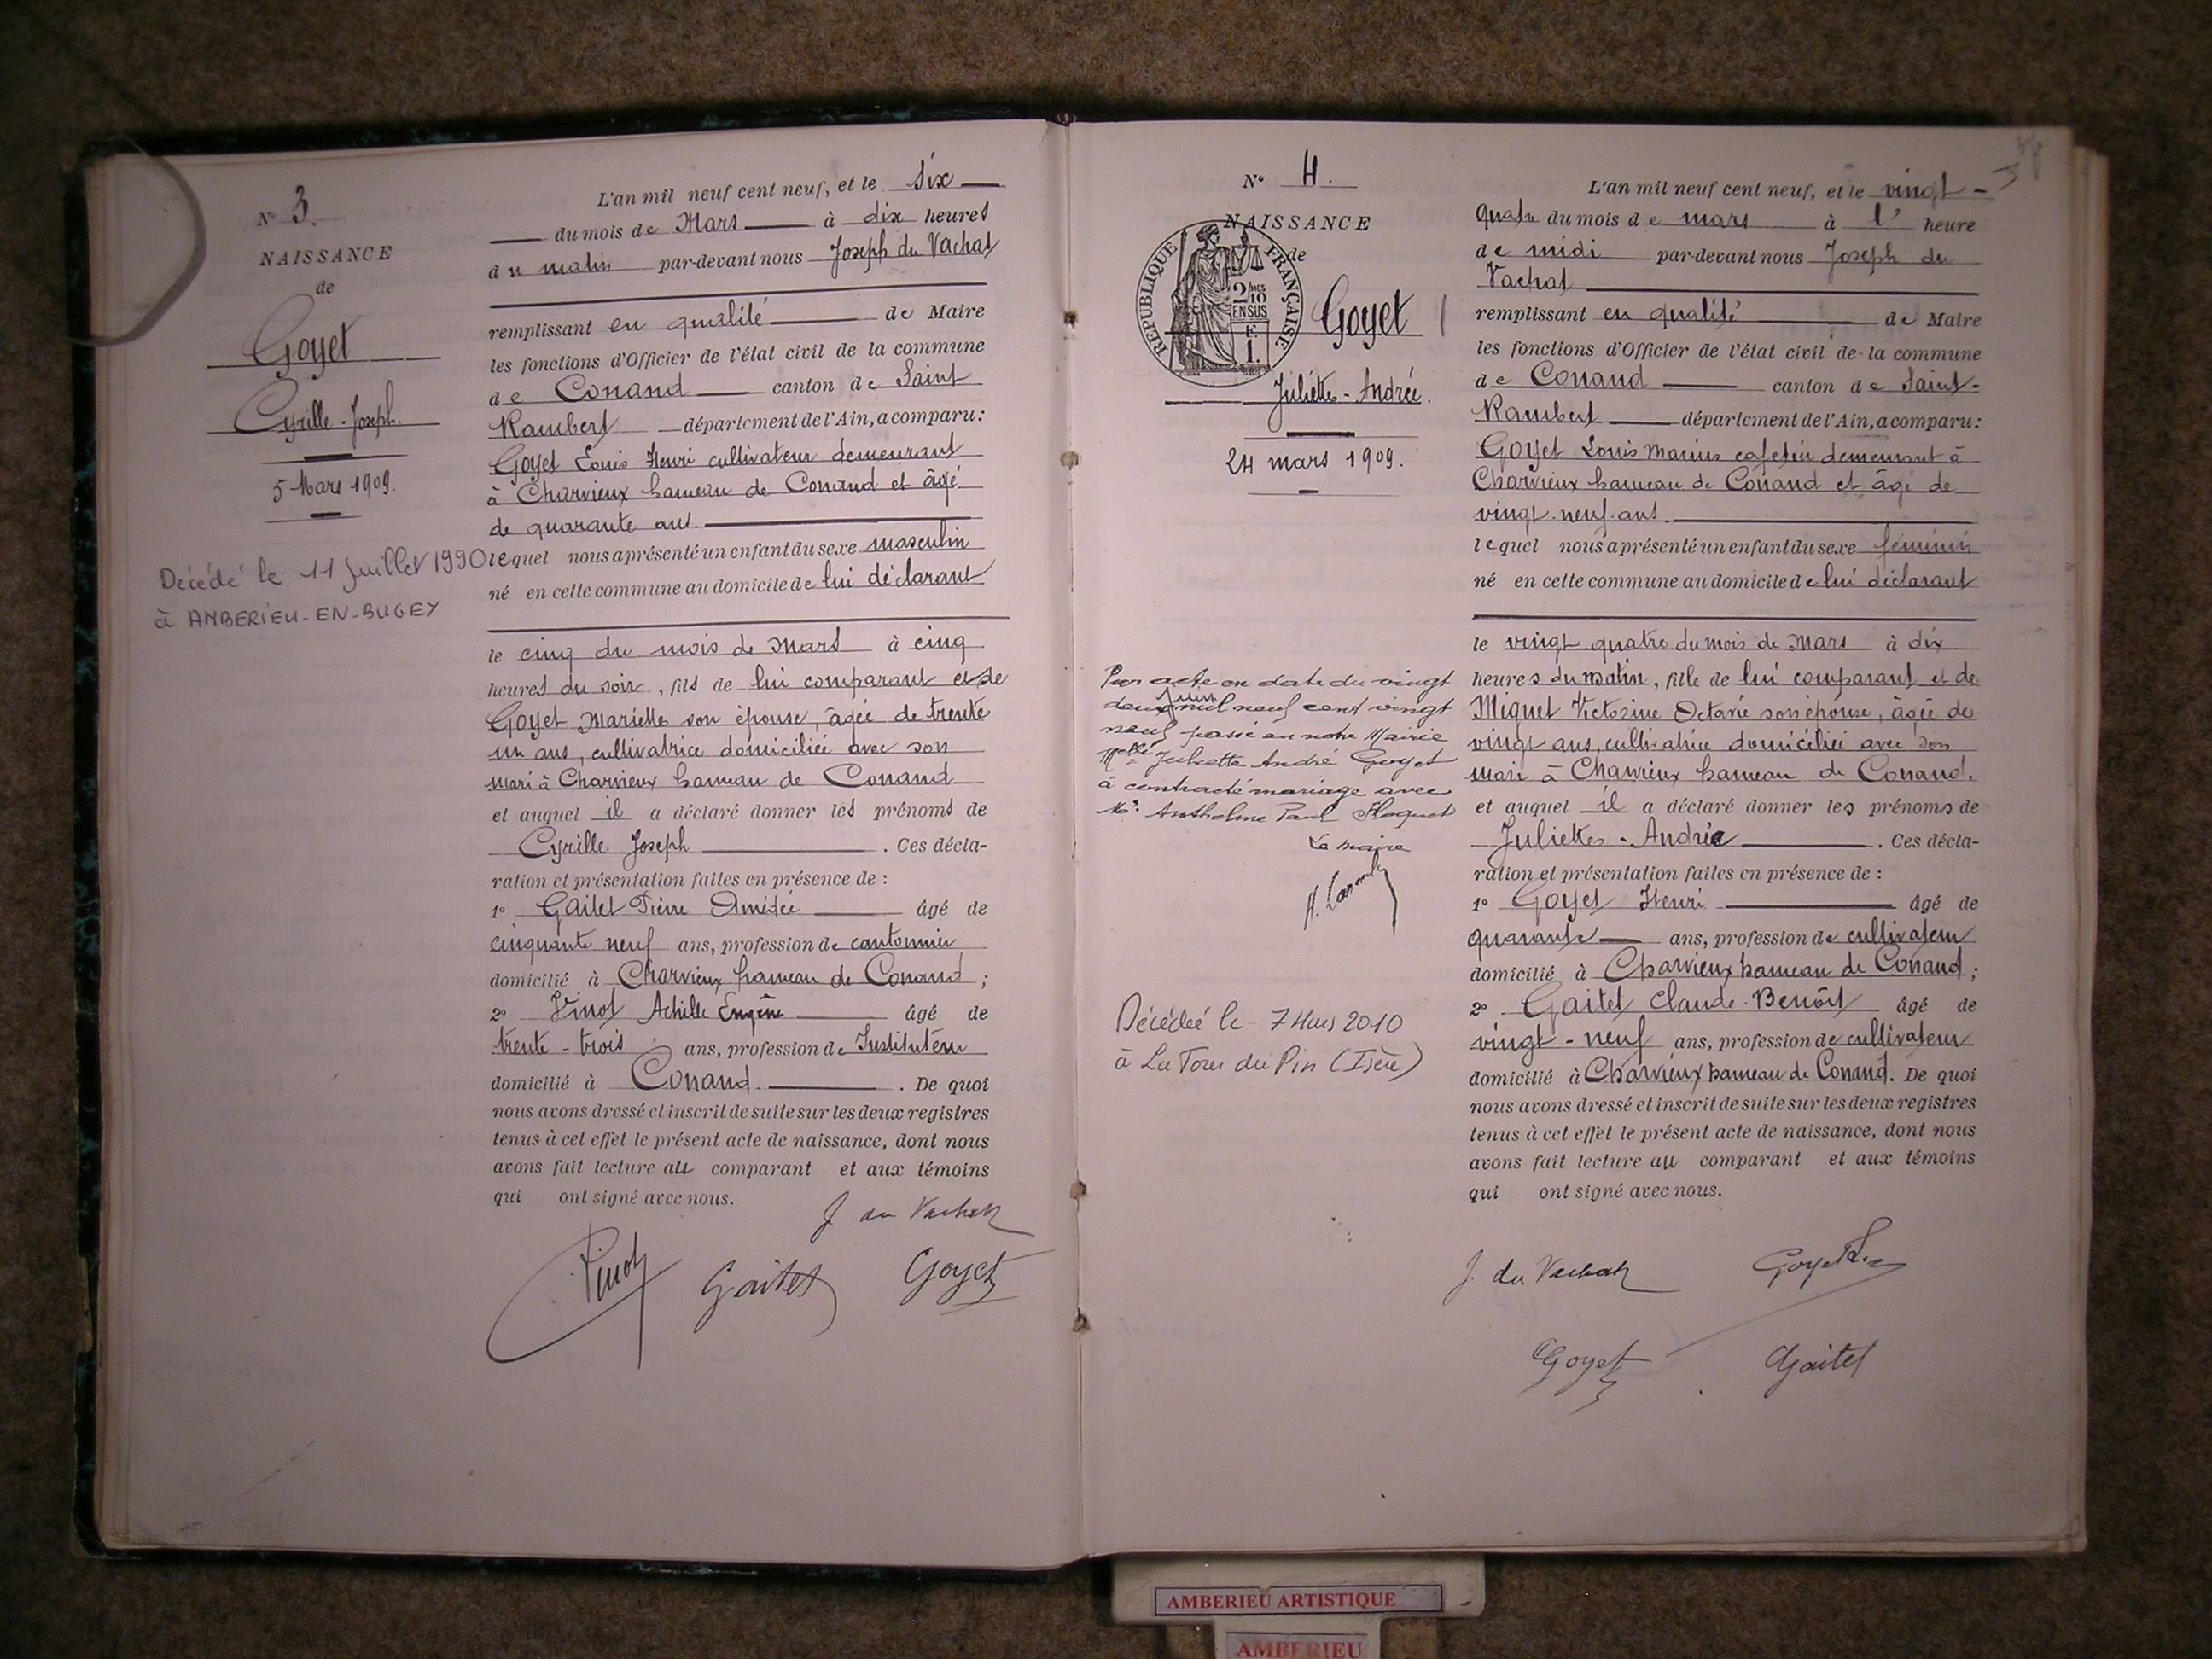 N° 3.
NAISSANCE
de
Goyet
Cyrille-Joseph.
5 Mars 1909.
Décédé le 11 Juillet 1990
à AMBERIEU-EN-BUGEY
L'an mil neuf cent neuf, et le six
du mois de Mars à dix heures
du matin par-devant nous Joseph du Vachat
remplissant en qualité de Maire
les fonctions d'Officier de l'état civil de la commune
de Conand canton de Saint
Rambert département de l'Ain, a comparu:
Goyet Louis Henri cultivateur demeurant
à Charvieux hameau de Conand et âgé
de quarante ans.
lequel nous a présenté un enfant du sexe masculin
né en cette commune au domicile de lui déclarant
le cinq du mois de Mars à cinq
heures du soir, fils de lui comparant et de
Goyet Mariette son épouse, âgée de trente
un ans, cultivatrice domiciliée avec son
mari à Charvieux hameau de Conand
et auquel il a déclaré donner les prénoms de
Cyrille Joseph. Ces décla-
ration et présentation faites en présence de :
1° Gaitet Pierre Amédée âgé de
cinquante neuf ans, profession de cantonnier
domicilié à Charvieux hameau de Conand ;
2° Vinot Achille Eugène âgé de
trente-trois ans, profession de Instituteur
domicilié à Conand. De quoi
nous avons dressé et inscrit de suite sur les deux registres
tenus à cet effet le présent acte de naissance, dont nous
avons fait lecture au comparant et aux témoins
qui ont signé avec nous.
J. du Vachat
Vinot Gaitet Goyet
N° 4.
NAISSANCE
de
REPUBLIQUE FRANÇAISE
2/10 MES
EN SUS
F.
1.
Goyet
Juliette-Andrée.
24 mars 1909.
Par acte en date du vingt
deux juin mil neuf cent vingt
neuf passé en notre Mairie
Melle Juliette André Goyet
à contracté mariage avec
Mr. Anthelme Paul Floquet
Le maire
Décédée le 7 Mars 2010
à La Tour du Pin (Isère)
L'an mil neuf cent neuf, et le vingt-
quatre du mois de mars à 1' heure
de midi par-devant nous Joseph du
Vachat
remplissant en qualité de Maire
les fonctions d'Officier de l'état civil de la commune
de Conand canton de Saint-
Rambert département de l'Ain, a comparu:
Goyet Louis Marius cafetier demeurant à
Charvieux hameau de Conand et âgé de
vingt-neuf-ans.
lequel nous a présenté un enfant du sexe féminin
né en cette commune au domicile de lui déclarant
le vingt quatre du mois de Mars à dix
heures du matin, fille de lui comparant et de
Miguet Victorine Octavie son épouse, âgée de
vingt ans, cultivatrice domiciliée avec son
mari à Charvieux hameau de Conand.
et auquel il a déclaré donner les prénoms de
Juliette-Andrée. Ces décla-
ration et présentation faites en présence de :
1° Goyet Henri âgé de
quarante ans, profession de cultivateur
domicilié à Charvieux hameau de Conand ;
2° Gaitet Claude-Benoît âgé de
vingt-neuf ans, profession de cultivateur
domicilié à Charvieux hameau de Conand. De quoi
nous avons dressé et inscrit de suite sur les deux registres
tenus à cet effet le présent acte de naissance, dont nous
avons fait lecture au comparant et aux témoins
qui ont signé avec nous.
J. du Vachat Goyet
Goyet Gaitet
AMBERIEU ARTISTIQUE
AMBERIEU